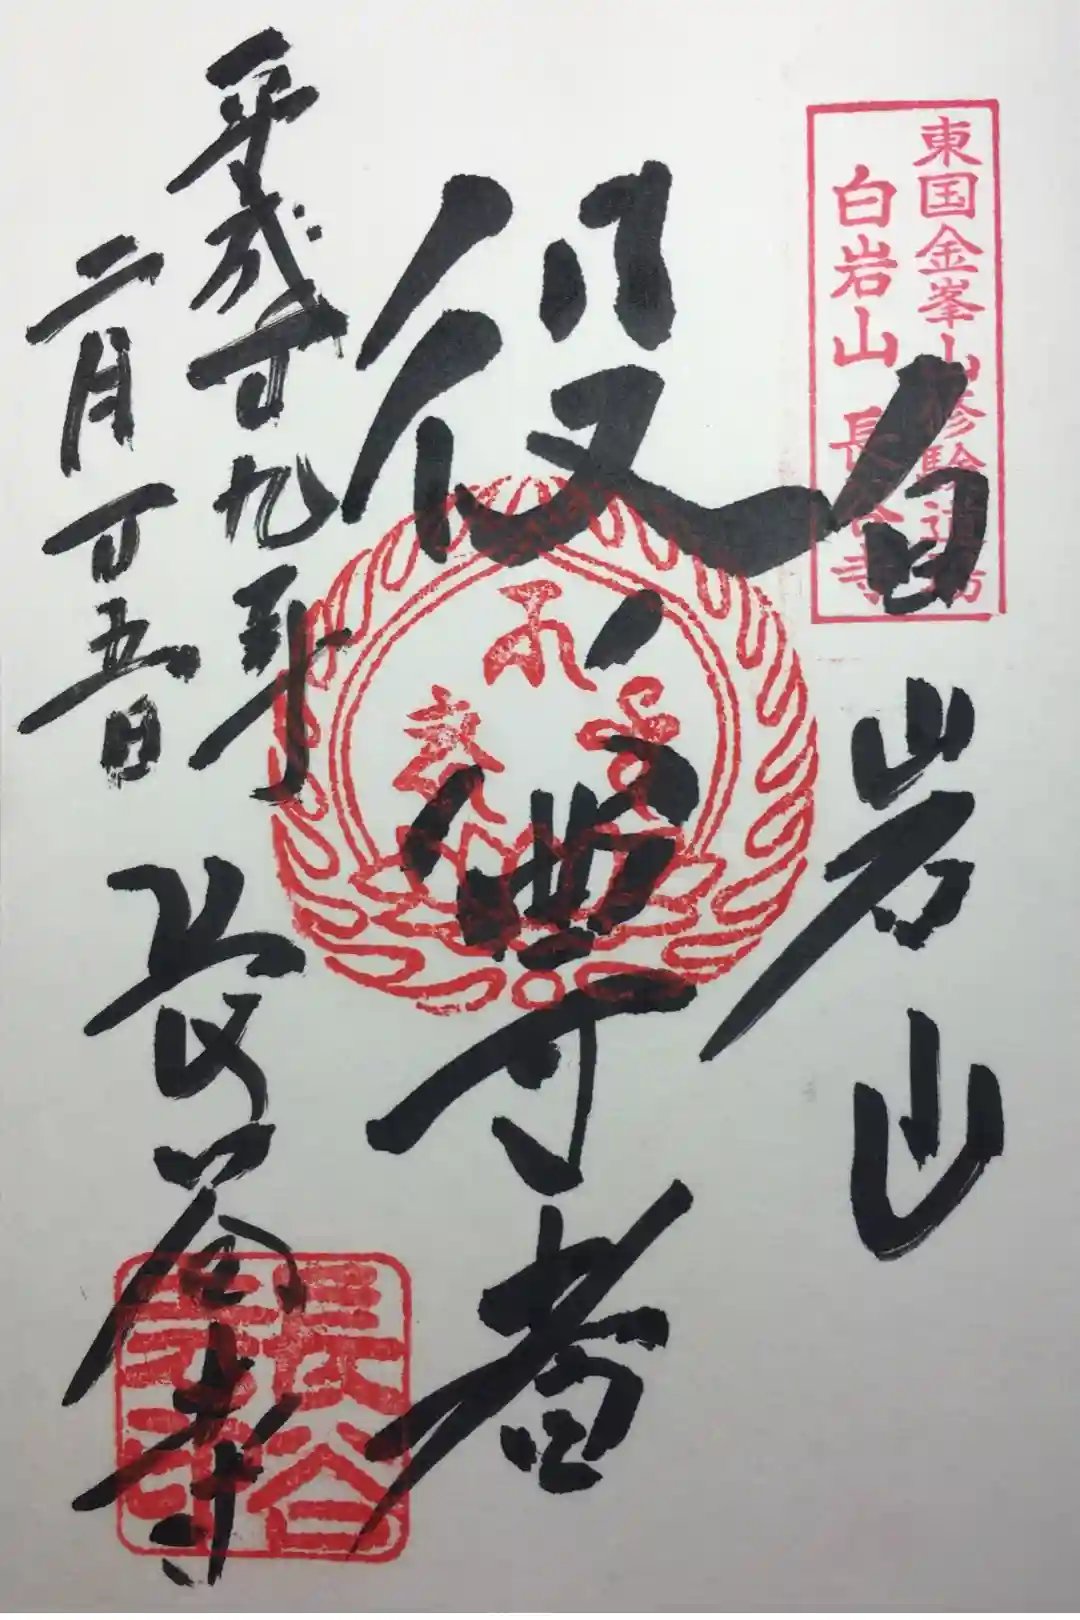 東国金峯山修験道場
白岩山長谷寺
白岩山
役尊者
平成廿九年
二月廿五日
長谷寺
長谷